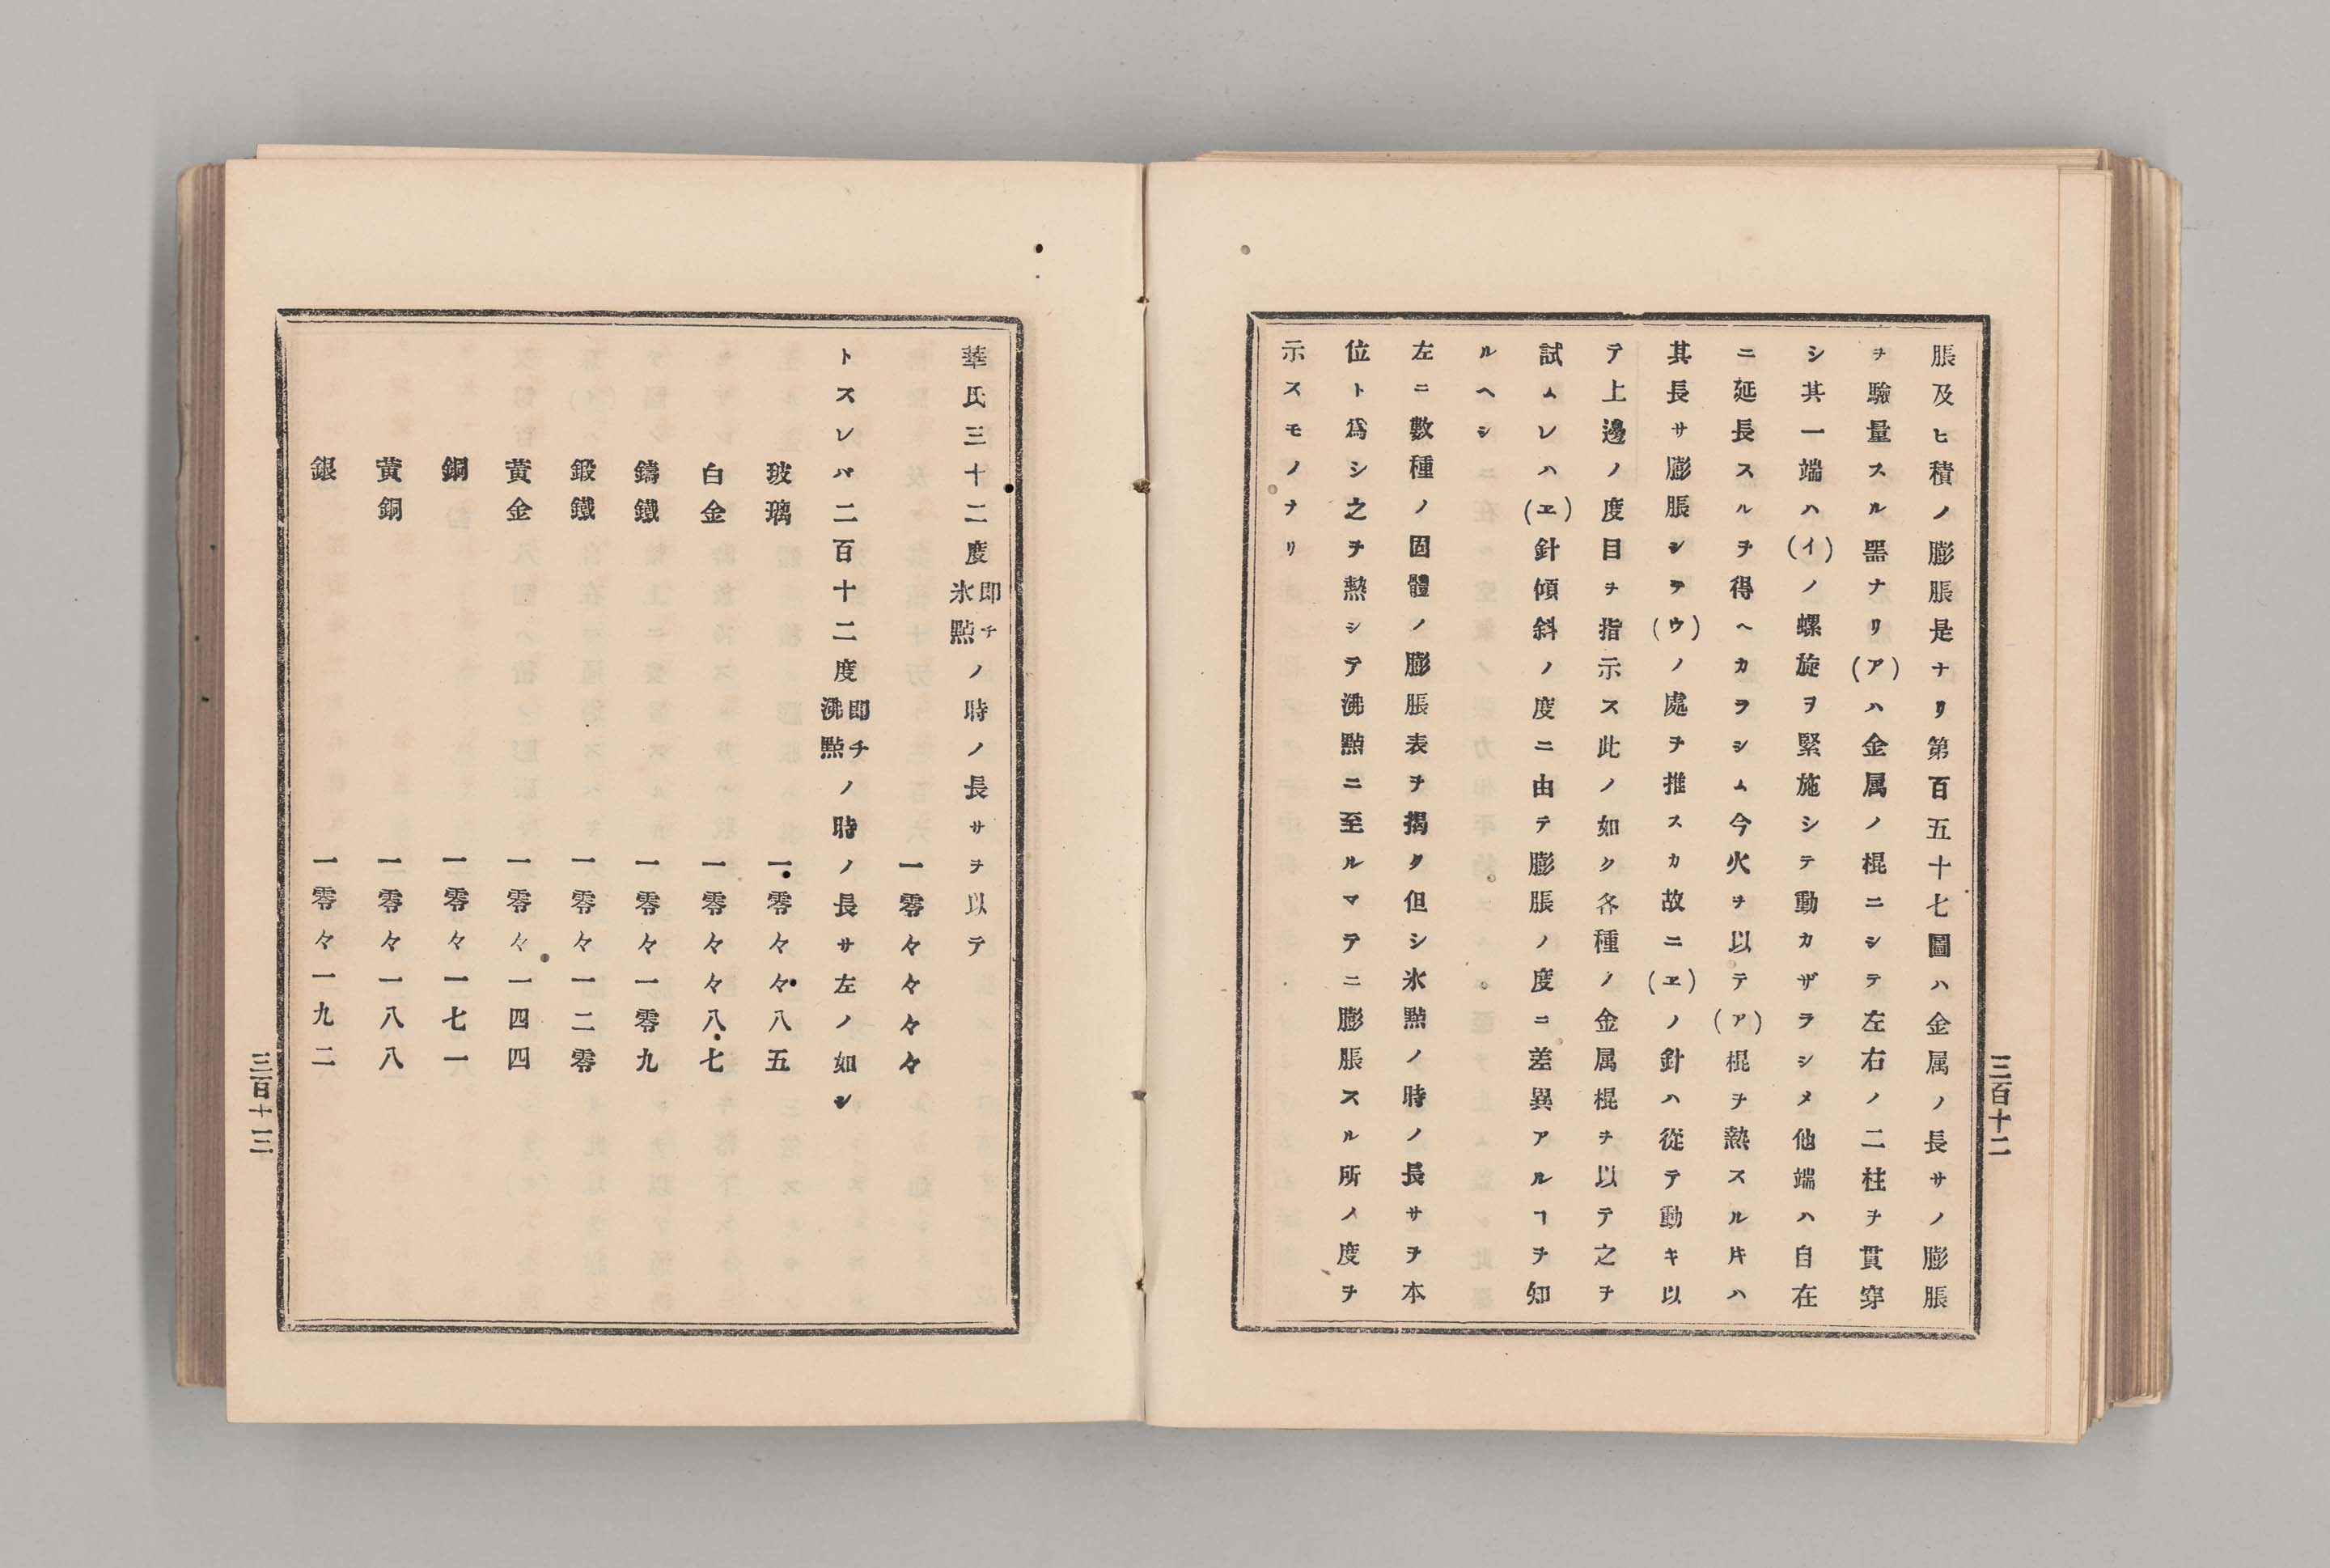 三百十二
脹及ヒ積ノ膨脹是ナリ第百五十七圖ハ金属ノ長サノ膨脹
ヲ驗量スル噐ナリ(ア)ハ金属ノ棍ニシテ左右ノ二柱ヲ貫穿
シ其一端ハ(イ)ノ螺旋ヲ緊施シテ動カザラシメ他端ハ自在
ニ延長スルヲ得ヘカラシム今火ヲ以テ(ア)棍ヲ熱スル𪜈ハ
其長サ膨脹シテ(ウ)ノ處ヲ推スカ故ニ(ヱ)ノ針ハ從テ動キ以
テ上邊ノ度目ヲ指示ス此ノ如ク各種ノ金属棍ヲ以テ之ヲ
試ムレハ(ヱ)針傾斜ノ度ニ由テ膨脹ノ度ニ差異アルヿヲ知
ルヘシ
左ニ數種ノ固體ノ膨脹表ヲ揭ク但シ氷㸃ノ時ノ長サヲ本
位ト爲シ之ヲ熱シテ沸㸃ニ至ルマテニ膨脹スル所ノ度ヲ
示スモノナリ
華氏三十二度即チ氷㸃ノ時ノ長サヲ以テ
一零々々々々
トスレバ二百十二度即チ沸㸃ノ時ノ長サ左ノ如シ
玻璃 一零々々八五
白金 一零々々八七
鑄鐵 一零々一零九
鍛鐵 一零々一二零
黄金 一零々一四四
銅 一零々一七一
黄銅 一零々一八八
銀 一零々一九二
三百十三